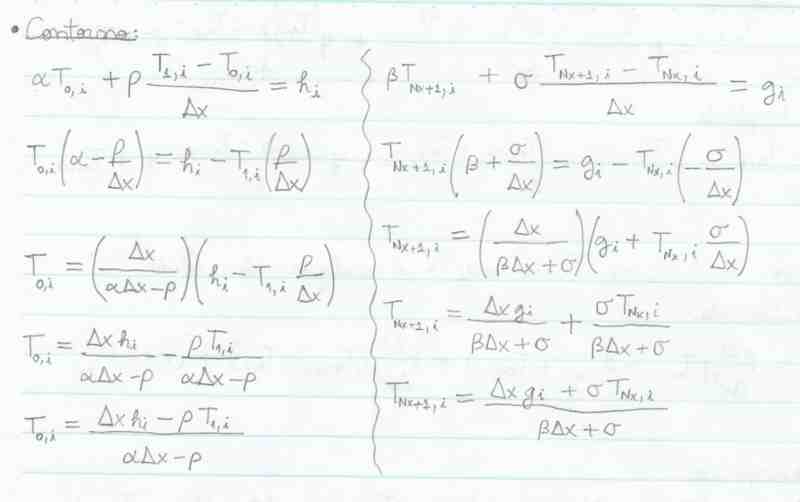 • Contorno:
αT₀,ᵢ + ρ (T₁,ᵢ − T₀,ᵢ)/Δx = hᵢ
T₀,ᵢ(α − ρ/Δx) = hᵢ − T₁,ᵢ(ρ/Δx)
T₀,ᵢ = (Δx/(αΔx−ρ))(hᵢ − T₁,ᵢ ρ/Δx)
T₀,ᵢ = Δx hᵢ/(αΔx−ρ) − ρT₁,ᵢ/(αΔx−ρ)
T₀,ᵢ = (Δx hᵢ − ρT₁,ᵢ)/(αΔx−ρ)
βT_{Nx+1,i} + σ (T_{Nx+1,i} − T_{Nx,i})/Δx = gᵢ
T_{Nx+1,i}(β + σ/Δx) = gᵢ − T_{Nx,i}(−σ/Δx)
T_{Nx+1,i} = (Δx/(βΔx+σ))(gᵢ + T_{Nx,i} σ/Δx)
T_{Nx+1,i} = Δx gᵢ/(βΔx+σ) + σT_{Nx,i}/(βΔx+σ)
T_{Nx+1,i} = (Δx gᵢ + σT_{Nx,i})/(βΔx+σ)